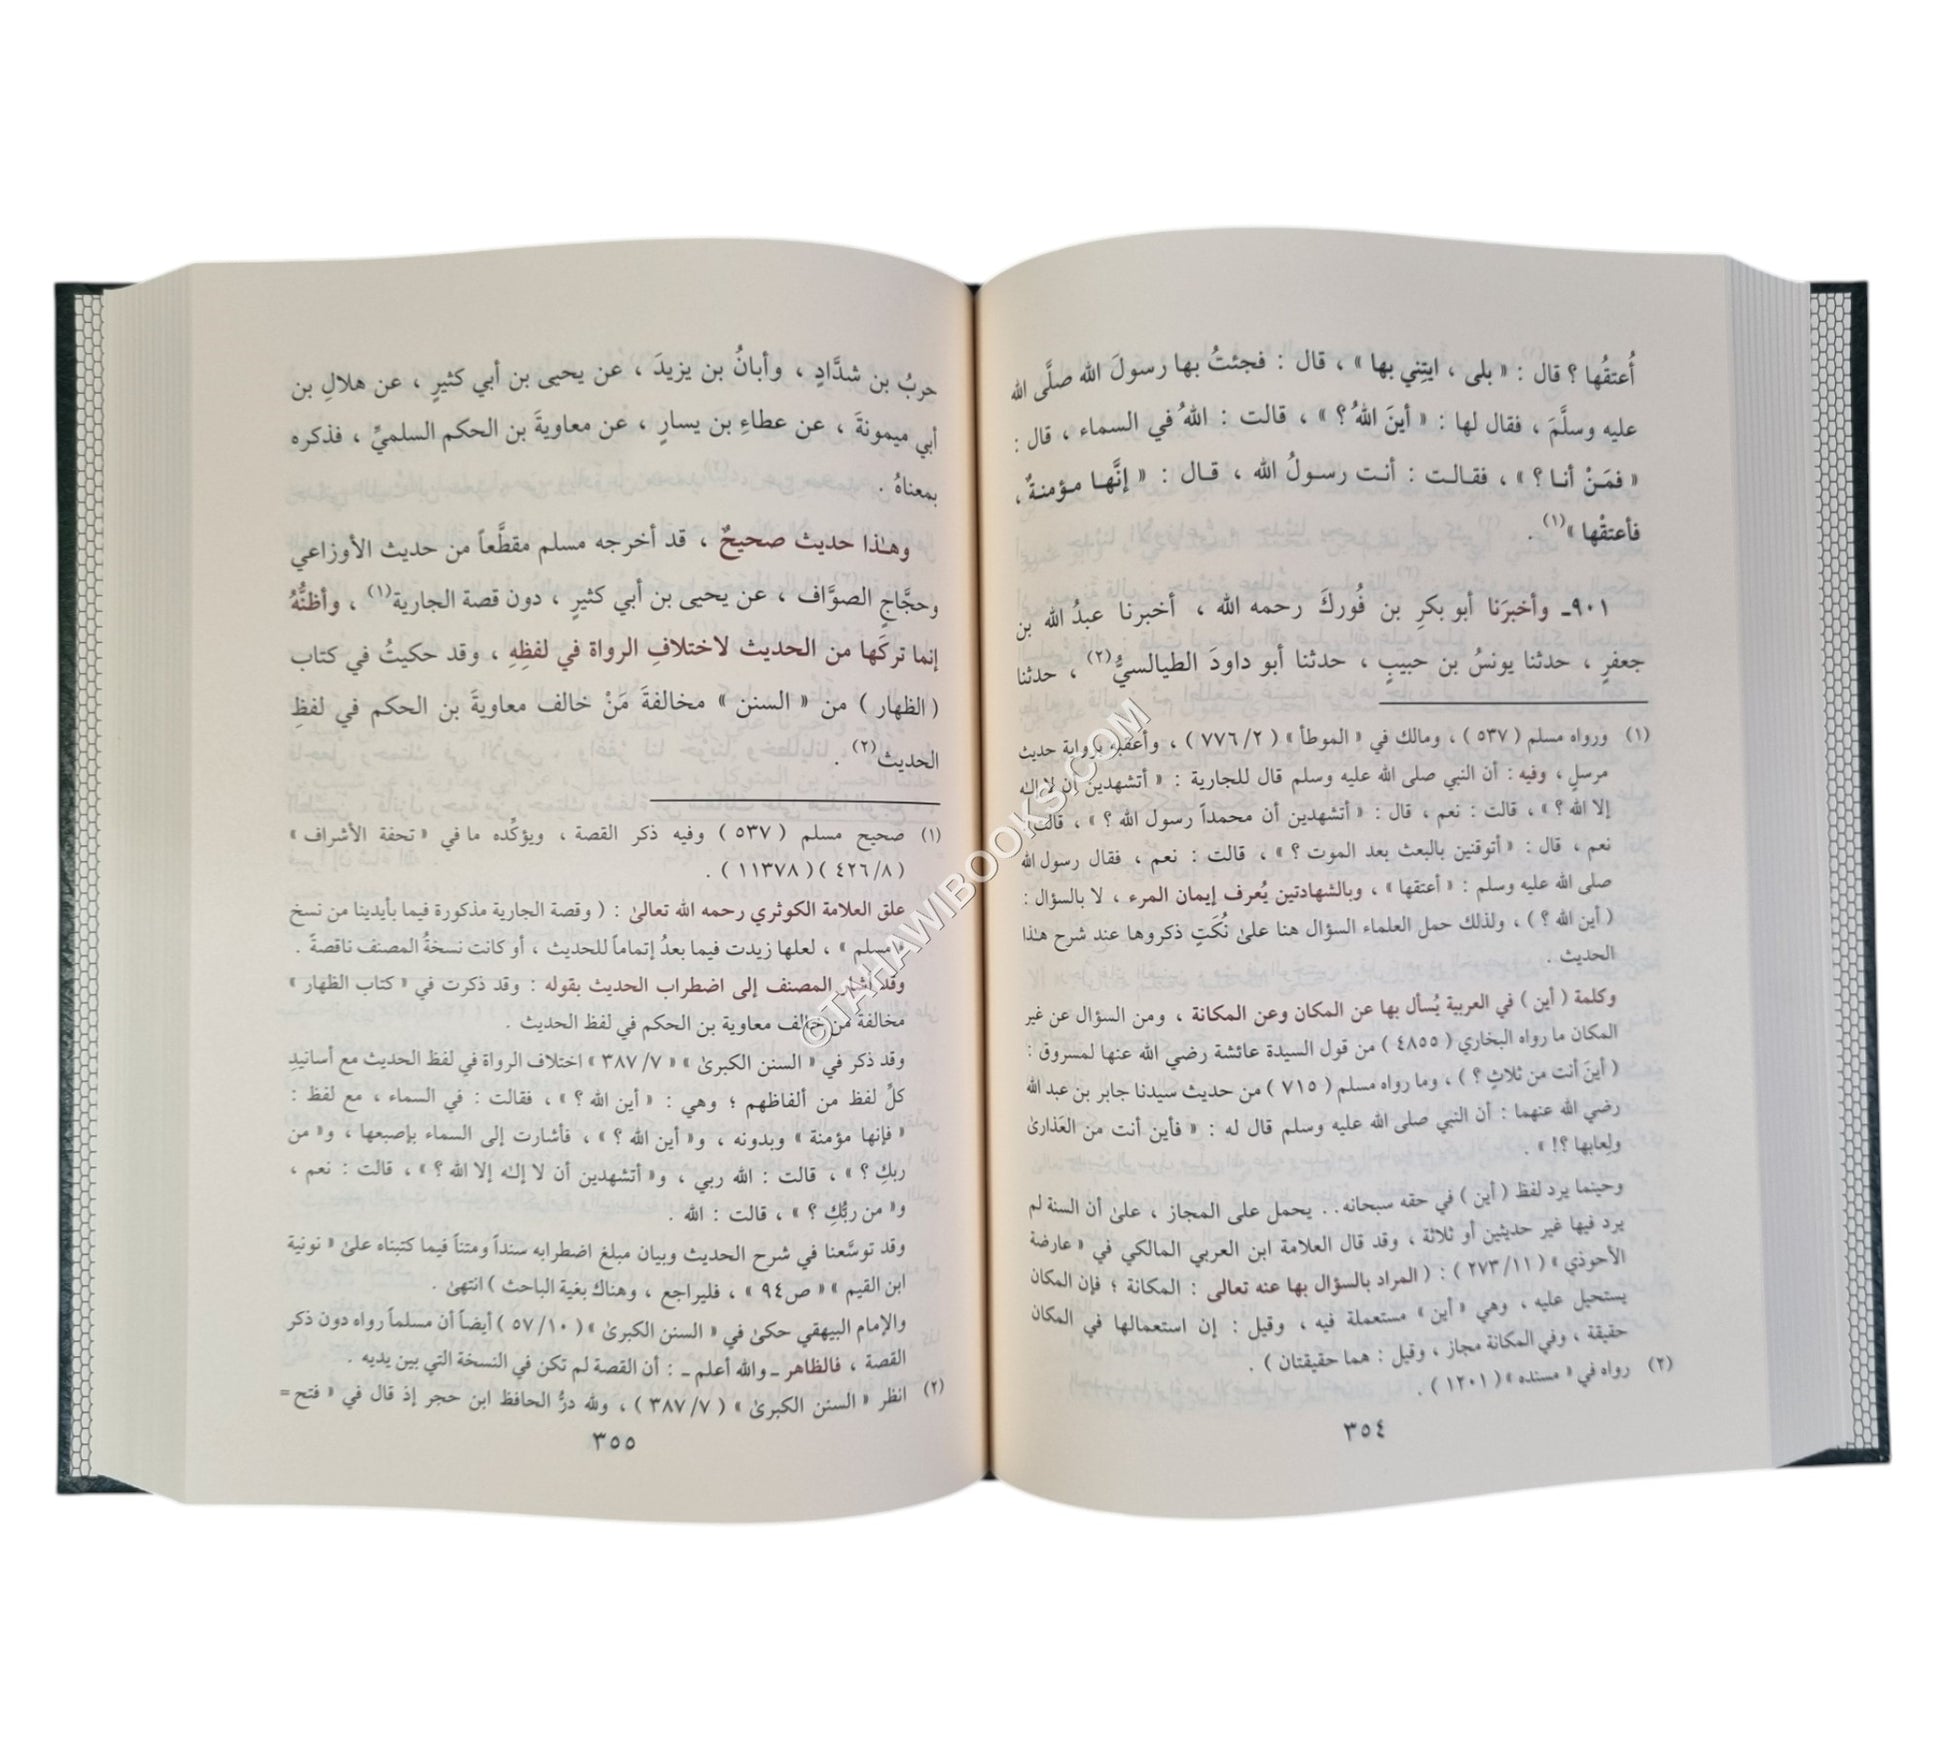 أُعتقُها ؟ قال : « بلى ، ايتِني بها » ، قال : فجئتُ بها رسولَ الله صلَّى الله
عليه وسلَّمَ ، فقال لها : « أينَ اللهُ ؟ » ، قالت : اللهُ في السماء ، قال :
« فمَنْ أنا ؟ » ، فقالت : أنت رسولُ الله ، قال : « إنَّها مؤمنةٌ ،
فأعتقْها »(١) .
٩٠١ـ وأخبرَنا أبو بكرِ بن فُوركَ رحمه الله ، أخبرنا عبدُ الله بن
جعفرٍ ، حدثنا يونسُ بن حبيبٍ ، حدثنا أبو داودَ الطيالسيُّ(٢) ، حدثنا
(١) ورواه مسلم ( ٥٣٧ ) ، ومالك في « الموطأ » ( ٧٧٦/٢ ) ، وأعقبه برواية حديث
مرسلٍ ، وفيه : أن النبي صلى الله عليه وسلم قال للجارية : « أتشهدين أن لا إلـٰه
إلا الله ؟ » ، قالت : نعم ، قال : « أتشهدين أن محمداً رسول الله ؟ » ، قالت :
نعم ، قال : « أتوقنين بالبعث بعد الموت ؟ » ، قالت : نعم ، فقال رسول الله
صلى الله عليه وسلم : « أعتقها » ، وبالشهادتين يُعرف إيمان المرء ، لا بالسؤال :
( أين الله ؟ ) ، ولذلك حمل العلماء السؤال هنا علىٰ نُكَتٍ ذكروها عند شرح هـٰذا
الحديث .
وكلمة ( أين ) في العربية يُسأل بها عن المكان وعن المكانة ، ومن السؤال عن غير
المكان ما رواه البخاري ( ٤٨٥٥ ) من قول السيدة عائشة رضي الله عنها لمسروق :
( أينَ أنت من ثلاثٍ ؟ ) ، وما رواه مسلم ( ٧١٥ ) من حديث سيدنا جابر بن عبد الله
رضي الله عنهما : أن النبي صلى الله عليه وسلم قال له : « فأين أنت من العَذارىٰ
ولِعابها ؟! » .
وحينما يرد لفظ ( أين ) في حقه سبحانه . . يحمل على المجاز ، علىٰ أن السنة لم
يرد فيها غير حديثين أو ثلاثة ، وقد قال العلامة ابن العربي المالكي في « عارضة
الأحوذي » ( ٢٧٣/١١ ) : ( المراد بالسؤال بها عنه تعالى : المكانة ؛ فإن المكان
يستحيل عليه ، وهي « أين » مستعملة فيه ، وقيل : إن استعمالها في المكان
حقيقة ، وفي المكانة مجاز ، وقيل : هما حقيقتان ) .
(٢) رواه في « مسنده » ( ١٢٠١ ) .
٣٥٤
حربُ بن شدَّادٍ ، وأبانُ بن يزيدَ ، عن يحيى بن أبي كثيرٍ ، عن هلالِ بن
أبي ميمونةَ ، عن عطاءِ بن يسارٍ ، عن معاويةَ بن الحكم السلميِّ ، فذكره
بمعناهُ .
وهـٰذا حديث صحيحٌ ، قد أخرجه مسلم مقطَّعاً من حديث الأوزاعي
وحجَّاجٍ الصوَّاف ، عن يحيى بن أبي كثيرٍ ، دون قصة الجارية(١) ، وأظنُّهُ
إنما تركَها من الحديث لاختلافِ الرواة في لفظِهِ ، وقد حكيتُ في كتاب
( الظهار ) من « السنن » مخالفةَ مَنْ خالف معاويةَ بن الحكم في لفظِ
الحديث(٢) .
(١) صحيح مسلم ( ٥٣٧ ) وفيه ذكر القصة ، ويؤكِّده ما في « تحفة الأشراف »
( ٤٢٦/٨ ) ( ١١٣٧٨ ) .
علق العلامة الكوثري رحمه الله تعالىٰ : ( وقصة الجارية مذكورة فيما بأيدينا من نسخ
« مسلم » ، لعلها زيدت فيما بعدُ إتماماً للحديث ، أو كانت نسخةُ المصنف ناقصةً .
وقد أشار المصنف إلى اضطراب الحديث بقوله : وقد ذكرت في « كتاب الظهار »
مخالفة من خالف معاوية بن الحكم في لفظ الحديث .
وقد ذكر في « السنن الكبرىٰ » « ٣٨٧/٧ » اختلاف الرواة في لفظ الحديث مع أسانيدِ
كلِّ لفظ من ألفاظهم ؛ وهي : « أين الله ؟ » ، فقالت : في السماء ، مع لفظ :
« فإنها مؤمنة » وبدونه ، و« أين الله ؟ » ، فأشارت إلى السماء بإصبعها ، و« من
ربكِ ؟ » ، قالت : الله ربي ، و« أتشهدين أن لا إلـٰه إلا الله ؟ » ، قالت : نعم ،
و« من ربُّكِ ؟ » ، قالت : الله .
وقد توسَّعنا في شرح الحديث وبيان مبلغ اضطرابه سنداً ومتناً فيما كتبناه علىٰ « نونية
ابن القيم » « ص٩٤ » ، فليراجع ، وهناك بغية الباحث ) انتهىٰ .
والإمام البيهقي حكىٰ في « السنن الكبرىٰ » ( ٥٧/١٠ ) أيضاً أن مسلماً رواه دون ذكر
القصة ، فالظاهر ـ والله أعلم ـ : أن القصة لم تكن في النسخة التي بين يديه .
(٢) انظر « السنن الكبرىٰ » ( ٣٨٧/٧ ) ، ولله درُّ الحافظ ابن حجر إذ قال في « فتح =
٣٥٥
©TAHAWIBOOKS.COM